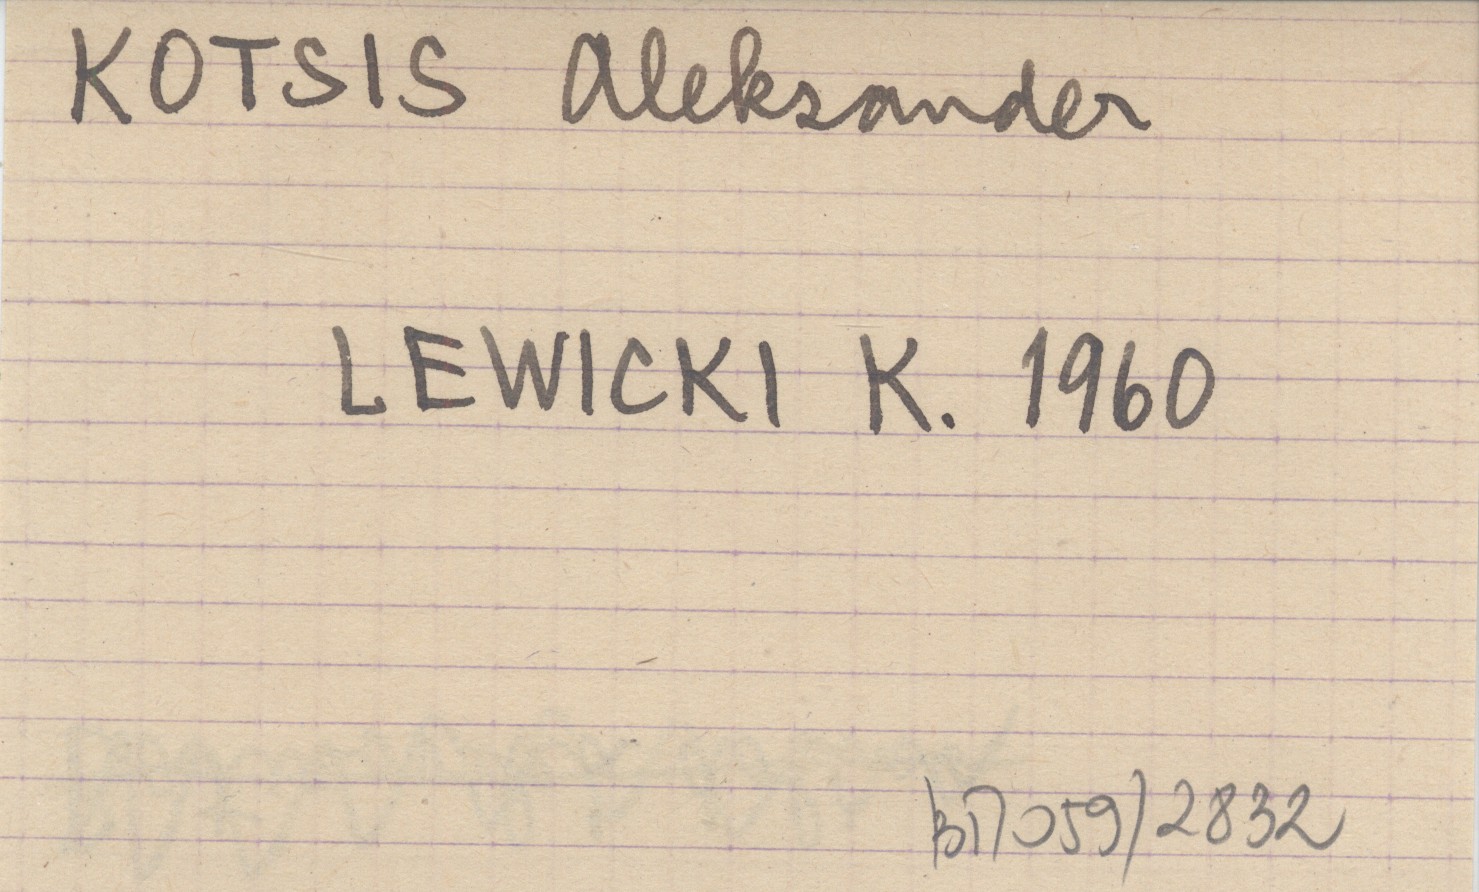 KOTSIS Aleksander
LEWICKI K. 1960
059/2832